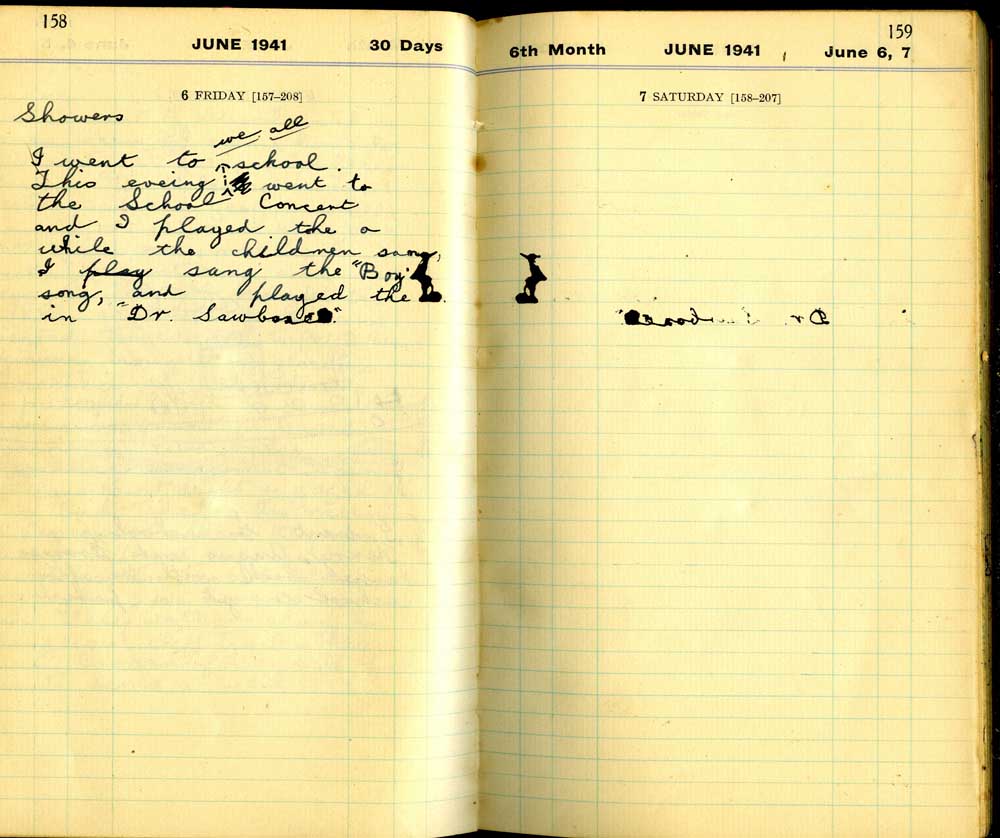 158
JUNE 1941 30 Days
6 FRIDAY [157–208]
Showers
we all
I went to school.
This eveing went to
the School Concert
and I played the a
while the children sang,
I play sang the "Boy"
song, and played the
in "Dr. Sawbones"
159
6th Month JUNE 1941 June 6, 7
7 SATURDAY [158–207]